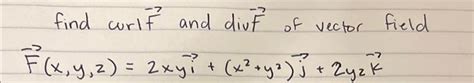 find curl F⃗ and div F⃗ of vector field
F⃗(x,y,z) = 2xy i⃗ + (x²+y²) j⃗ + 2yz k⃗